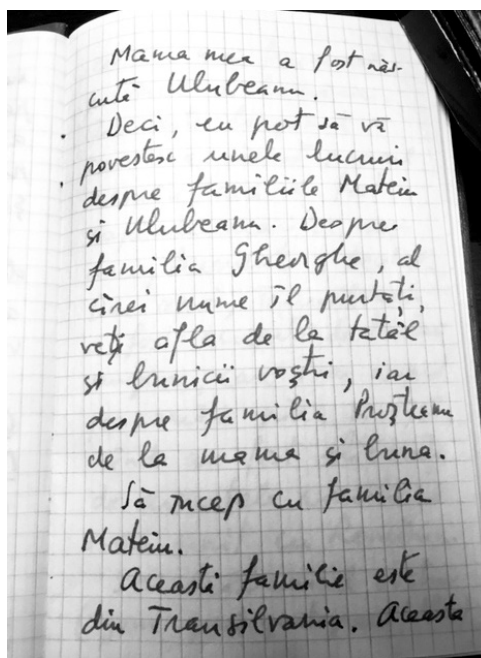 Mama mea a fost năs-
cută Ulubeanu.
Deci, eu pot să vă
povestesc unele lucruri
despre familiile Mateiu
și Ulubeanu. Despre
familia Gheorghe, al
cărei nume îl purtați,
veți afla de la tatăl
și bunicii voștri, iar
despre familia Proșteanu
de la mama și buna.
Să încep cu familia
Mateiu.
Această familie este
din Transilvania. Aceasta